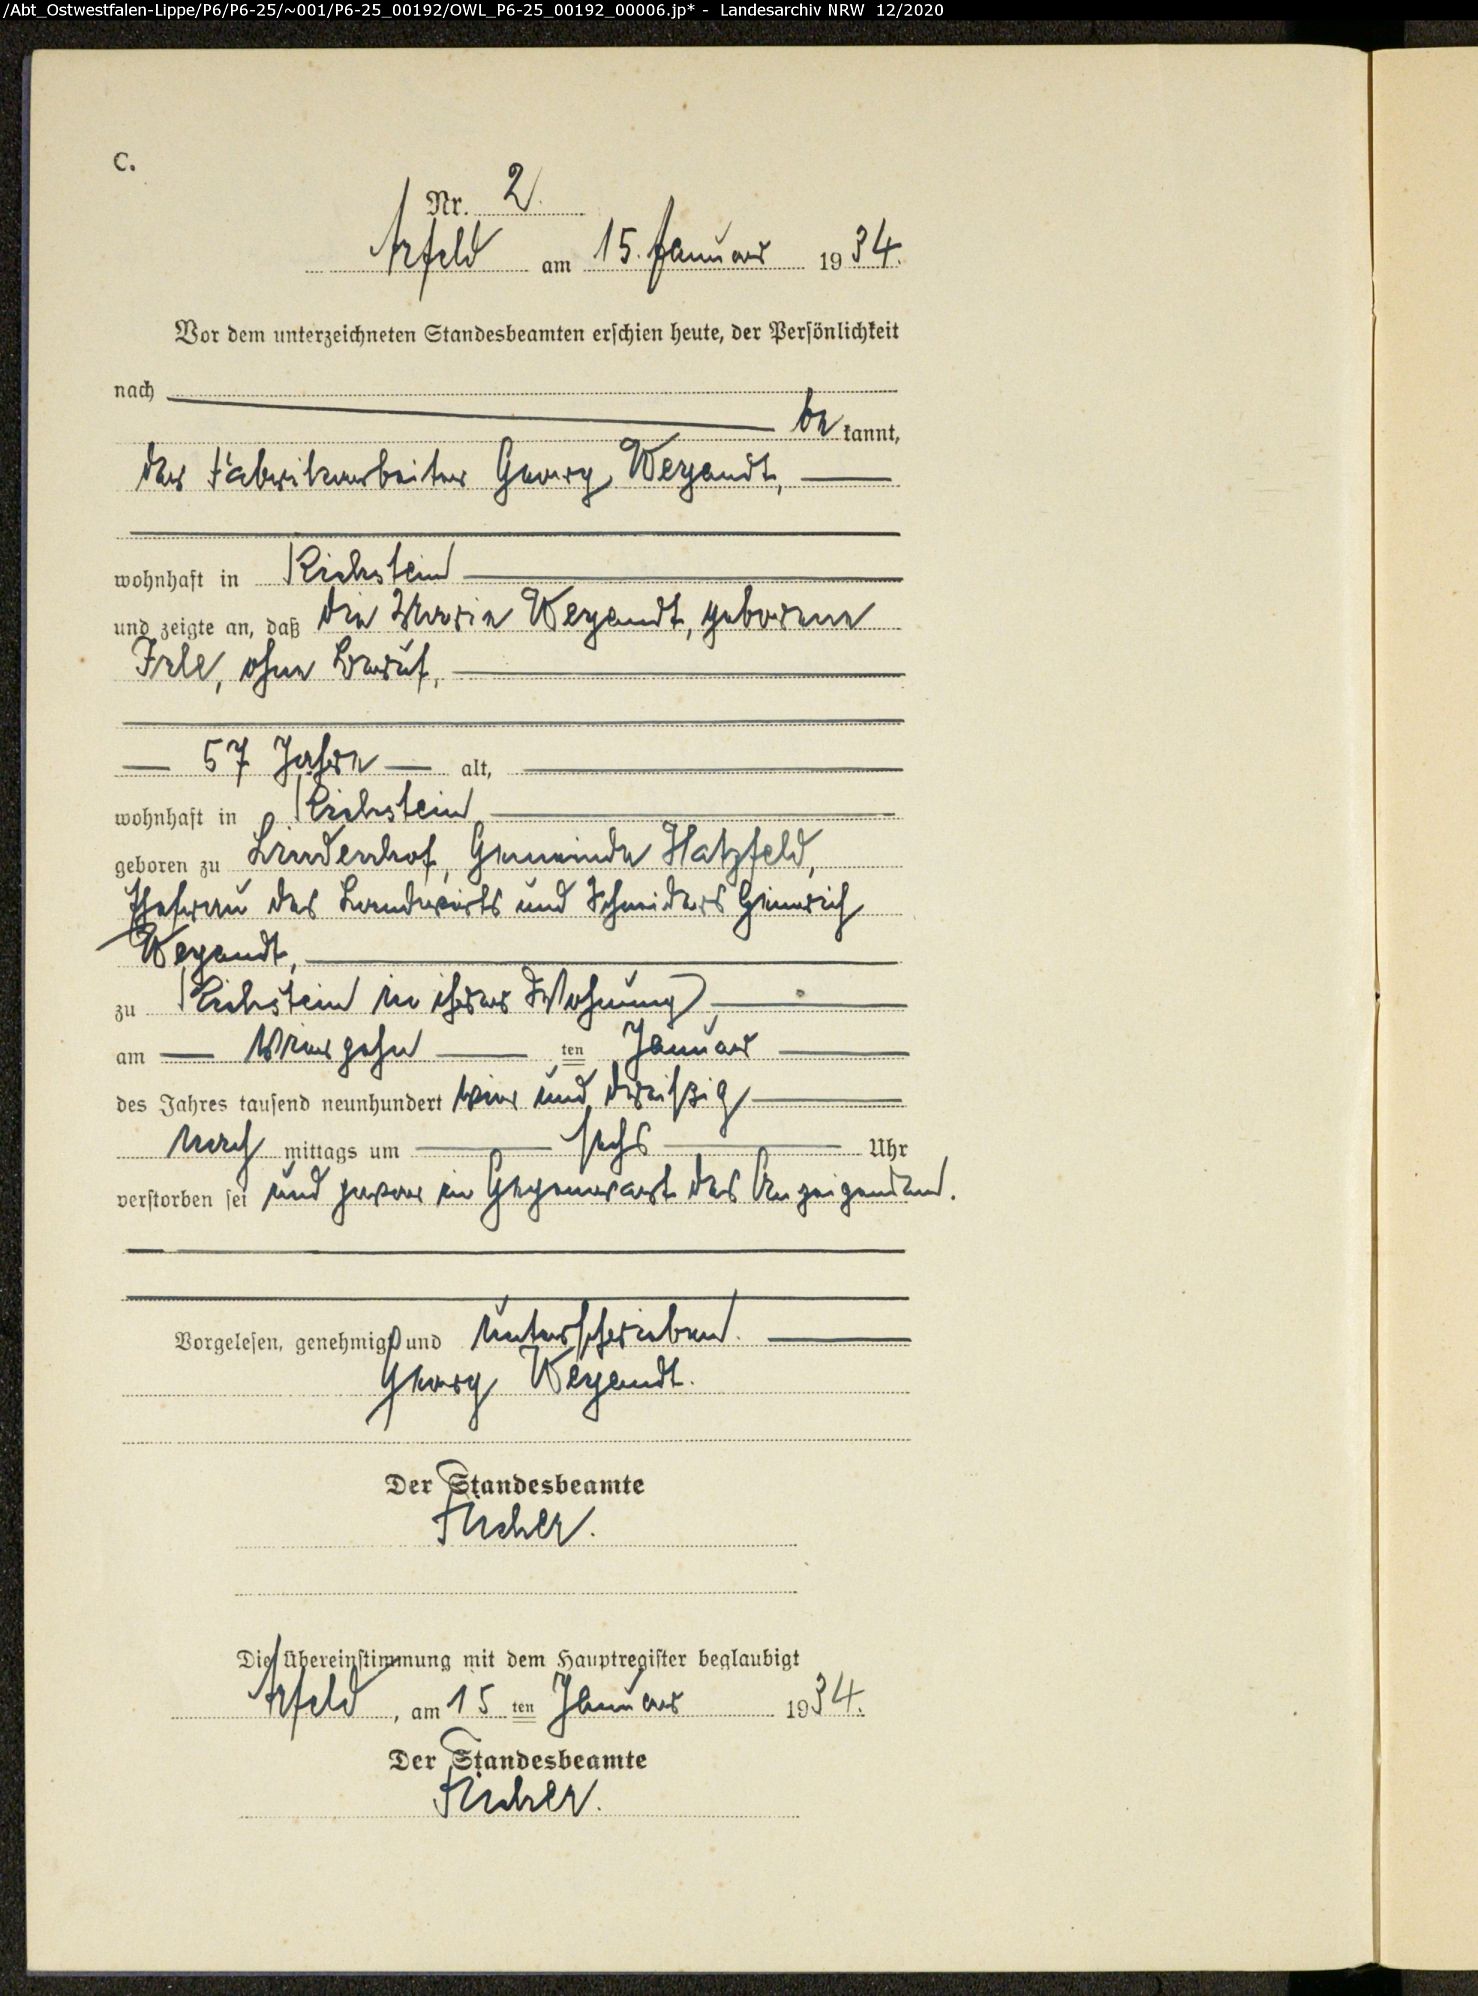 /Abt_Ostwestfalen-Lippe/P6/P6-25/~001/P6-25_00192/OWL_P6-25_00192_00006.jp* - Landesarchiv NRW 12/2020
C.
Nr. 2.
Arfeld am 15. Januar 1934.
Vor dem unterzeichneten Standesbeamten erschien heute, der Persönlichkeit
nach
be kannt,
der Fabrikarbeiter Georg Weyandt,
wohnhaft in Richstein
und zeigte an, daß die Marie Weyandt, geborene
Irle, ohne Beruf,
57 Jahre alt,
wohnhaft in Richstein
geboren zu Lindenhof, Gemeinde Hatzfeld,
Ehefrau des Landwirts und Schneiders Heinrich
Weyandt,
zu Richstein in ihrer Wohnung
am vierzehn ten Januar
des Jahres tausend neunhundert vier und dreißig
nach mittags um sechs Uhr
verstorben sei und zwar in Gegenwart des Anzeigenden.
Vorgelesen, genehmigt und unterschrieben.
Georg Weyandt.
Der Standesbeamte
Die Übereinstimmung mit dem Hauptregister beglaubigt
Arfeld, am 15 ten Januar 1934.
Der Standesbeamte